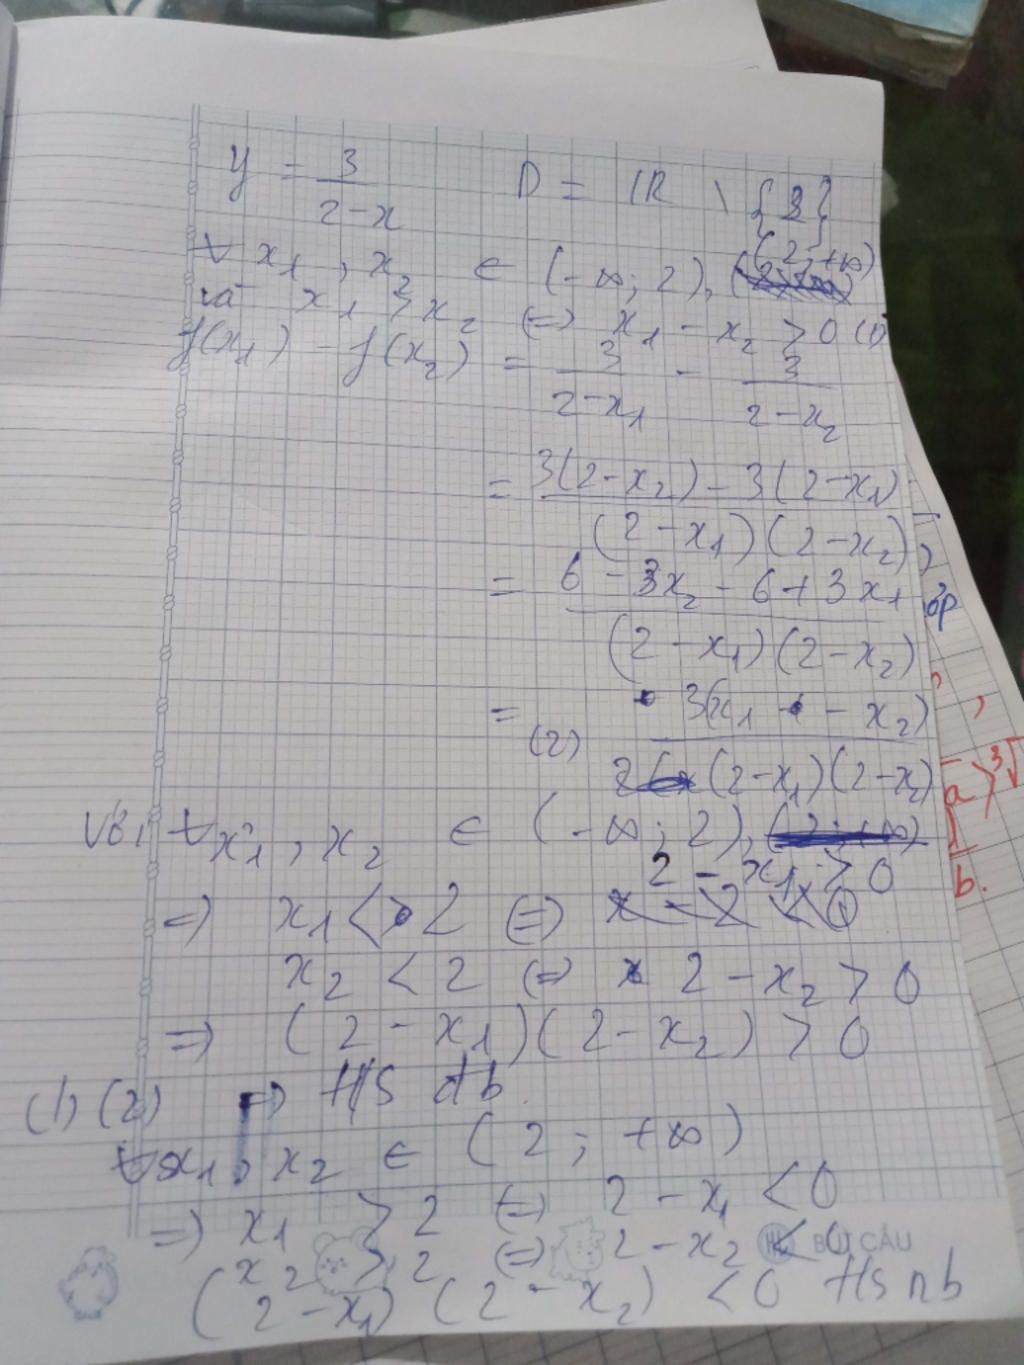 y = 3/(2-x) D = ℝ \ {2}
∀ x₁, x₂ ∈ (-∞; 2), (2; +∞)
và x₁ > x₂ ⇔ x₁ - x₂ > 0 (1)
f(x₁) - f(x₂) = 3/(2-x₁) - 3/(2-x₂)
= (3(2-x₂) - 3(2-x₁))/((2-x₁)(2-x₂))
= (6 - 3x₂ - 6 + 3x₁)/((2-x₁)(2-x₂))
= 3(x₁ - x₂)/((2-x₁)(2-x₂)) (2)
Với ∀ x₁, x₂ ∈ (-∞; 2),
⇒ x₁ < 2 ⇔ 2 - x₁ > 0
x₂ < 2 ⇔ 2 - x₂ > 0
⇒ (2 - x₁)(2 - x₂) > 0
(1) (2) ⇒ HS đb.
∀ x₁, x₂ ∈ (2; +∞)
⇒ x₁ > 2 ⇔ 2 - x₁ < 0
x₂ > 2 ⇔ 2 - x₂ < 0
BÚT CÂU
(2 - x₁)(2 - x₂) < 0 HS nb
a > ³√
b.